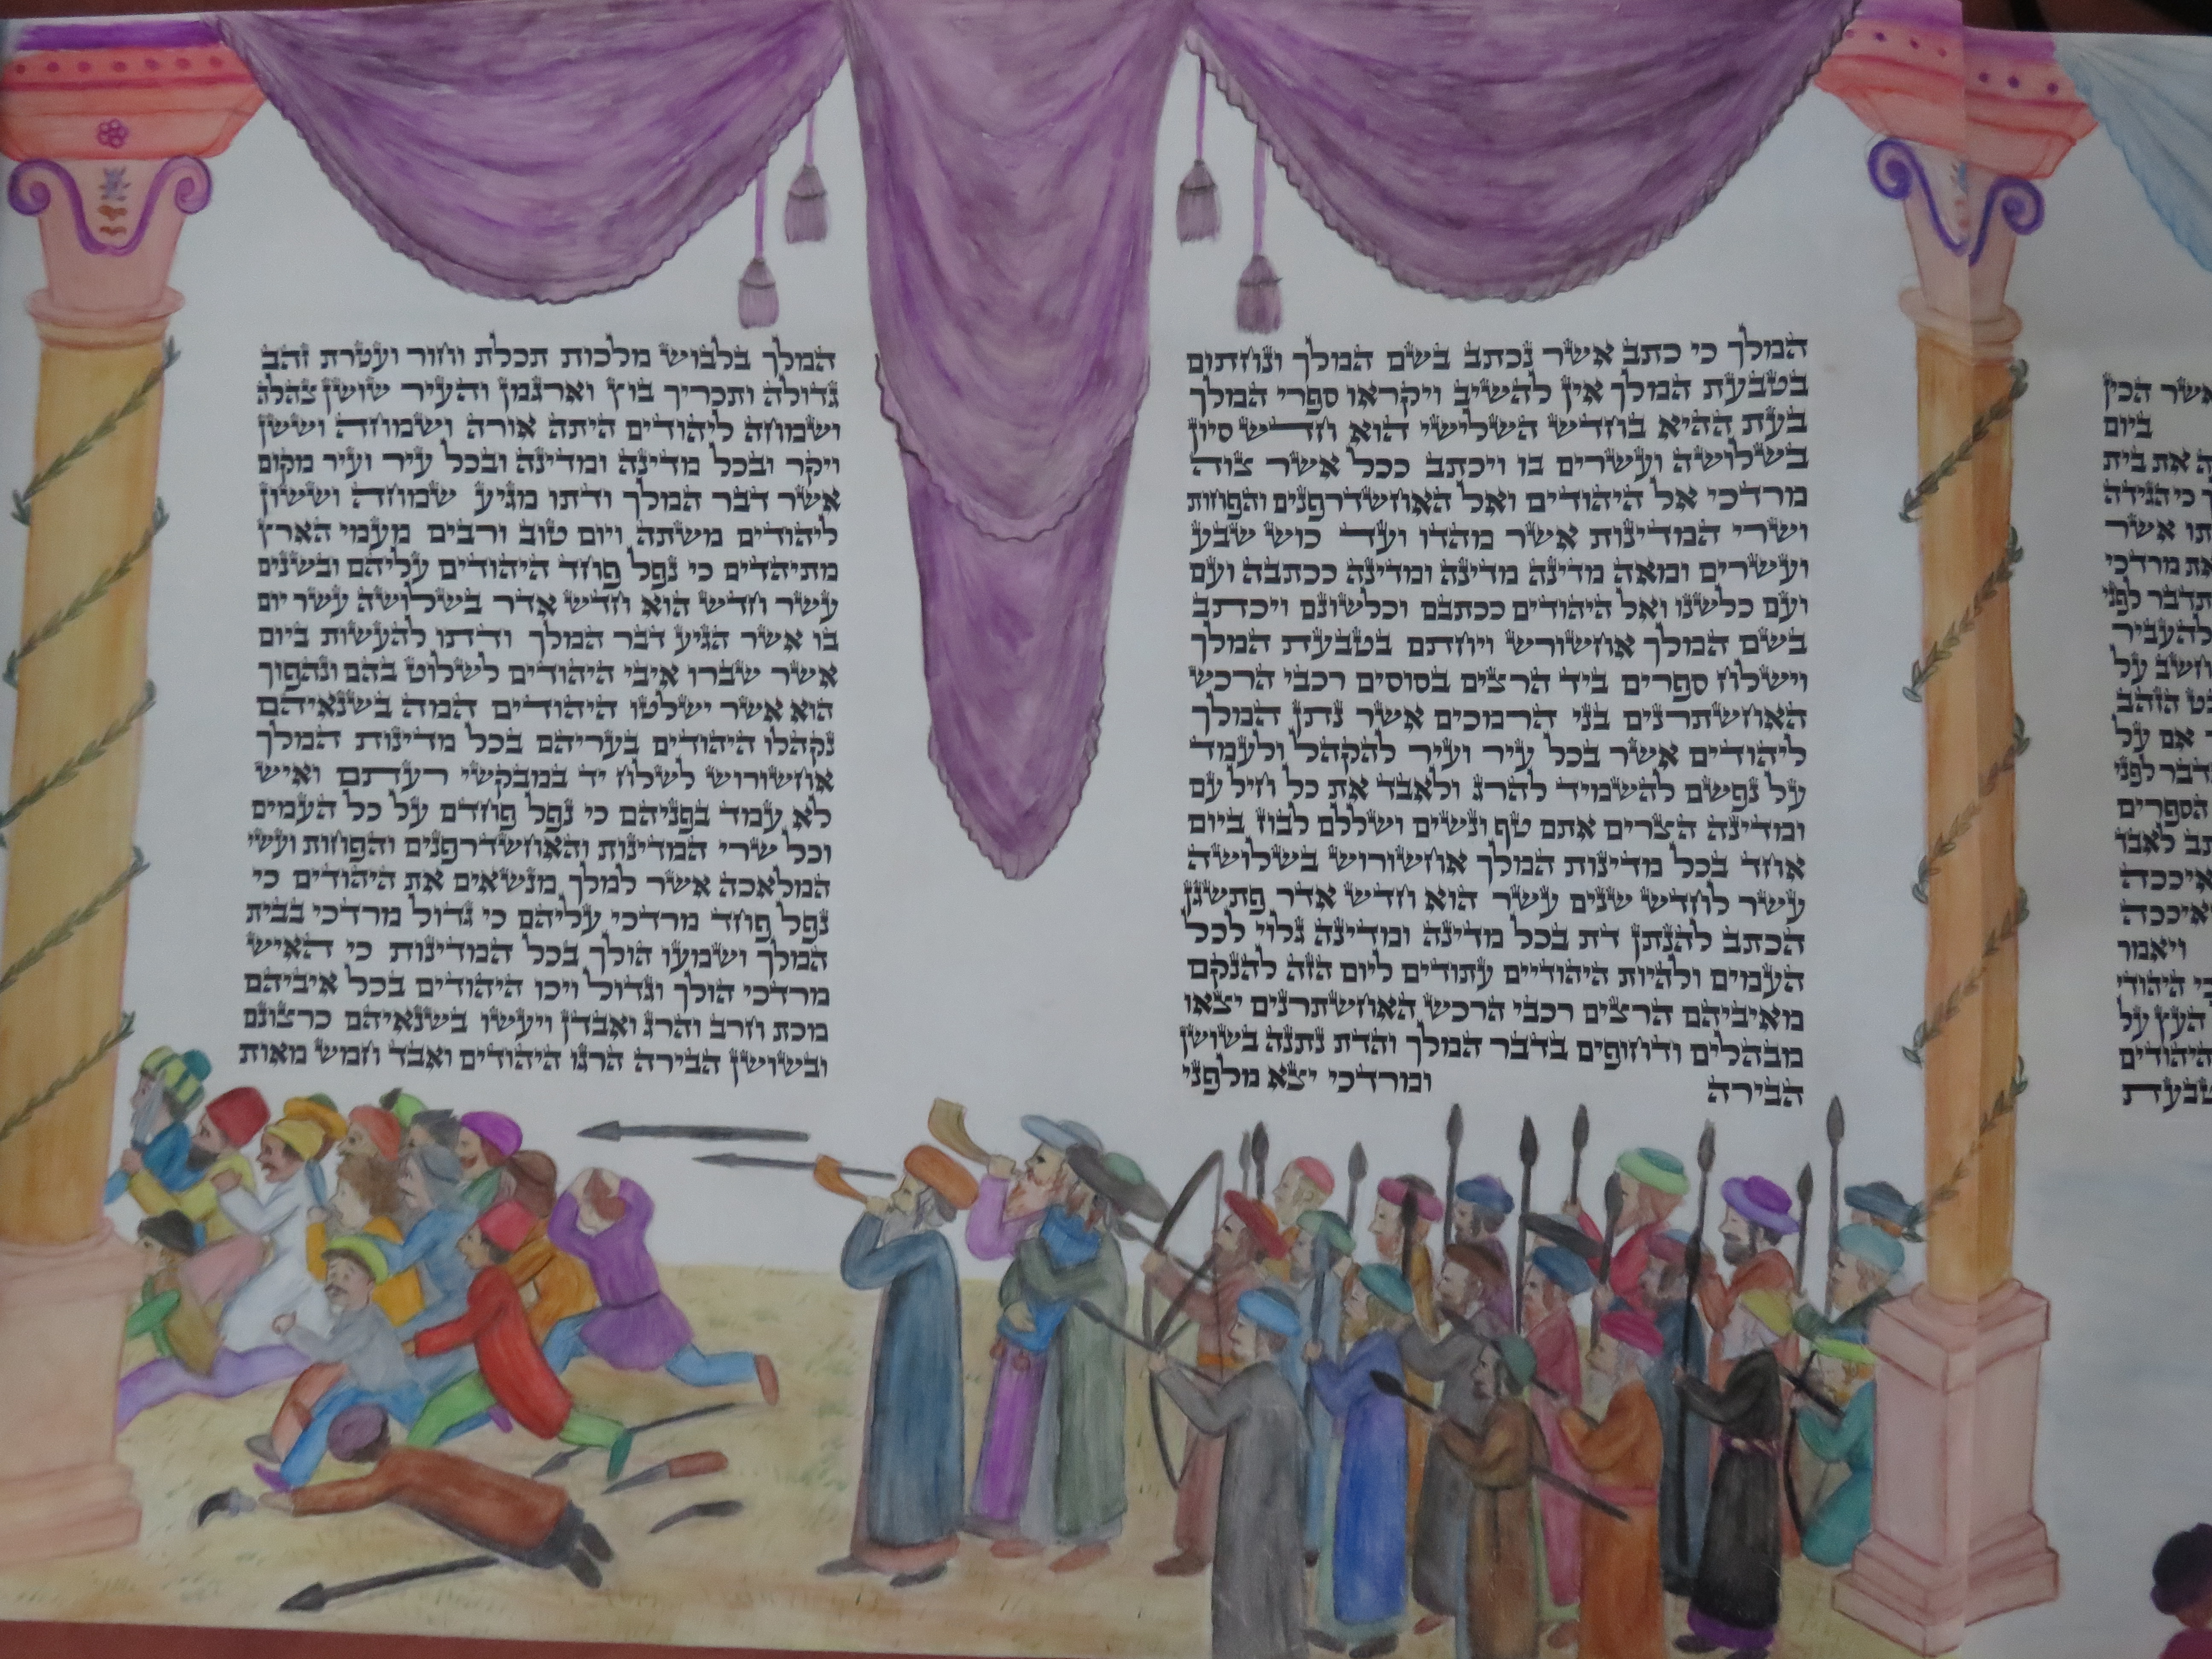 אשר הכין
ביום
את בית
כי הגידה
אשר
מרדכי
לפני
להעביר
על
הזהב
אם על
לפני
הספרים
לאבד
איככה
ואיככה
ויאמר
היהודי
העץ על
היהודים
המלך כי כתב אשר נכתב בשם המלך ונחתום
בטבעת המלך אין להשיב ויקראו ספרי המלך
בעת ההיא בחדש השלישי הוא חדש סיון
בשלושה ועשרים בו ויכתב ככל אשר צוה
מרדכי אל היהודים ואל האחשדרפנים והפחות
ושרי המדינות אשר מהדו ועד כוש שבע
ועשרים ומאה מדינה מדינה ומדינה ככתבה ועם
ועם כלשנו ואל היהודים ככתבם וכלשונם ויכתב
בשם המלך אחשורש ויחתם בטבעת המלך
וישלח ספרים ביד הרצים בסוסים רכבי הרכש
האחשתרנים בני הרמכים אשר נתן המלך
ליהודים אשר בכל עיר ועיר להקהל ולעמד
על נפשם להשמיד להרג ולאבד את כל חיל עם
ומדינה הצרים אתם טף ונשים ושללם לבוז ביום
אחד בכל מדינות המלך אחשורוש בשלושה
עשר לחדש שנים עשר הוא חדש אדר פתשגן
הכתב להנתן דת בכל מדינה ומדינה גלוי לכל
העמים ולהיות היהודיים עתודים ליום הזה להנקם
מאיביהם הרצים רכבי הרכש האחשתרנים יצאו
מבהלים ודחופים בדבר המלך והדת נתנה בשושן
הבירה ומרדכי יצא מלפני
המלך בלבוש מלכות תכלת וחור ועטרת זהב
גדולה ותכריך בוץ וארגמן והעיר שושן צהלה
ושמחה ליהודים היתה אורה ושמחה וששן
ויקר ובכל מדינה ומדינה ובכל עיר ועיר מקום
אשר דבר המלך ודתו מגיע שמחה וששון
ליהודים משתה ויום טוב ורבים מעמי הארץ
מתיהדים כי נפל פחד היהודים עליהם ובשנים
עשר חדש הוא חדש אדר בשלושה עשר יום
בו אשר הגיע דבר המלך ודתו להעשות ביום
אשר שברו איבי היהודים לשלוט בהם ונהפוך
הוא אשר ישלטו היהודים המה בשנאיהם
נקהלו היהודים בעריהם בכל מדינות המלך
אחשורוש לשלח יד במבקשי רעתם ואיש
לא עמד בפניהם כי נפל פחדם על כל העמים
וכל שרי המדינות והאחשדרפנים והפחות ועשי
המלאכה אשר למלך מנשאים את היהודים כי
נפל פחד מרדכי עליהם כי גדול מרדכי בבית
המלך ושמעו הולך בכל המדינות כי האיש
מרדכי הולך וגדול ויכו היהודים בכל איביהם
מכת חרב והרג ואבדן ויעשו בשנאיהם כרצונם
ובשושן הבירה הרגו היהודים ואבד חמש מאות